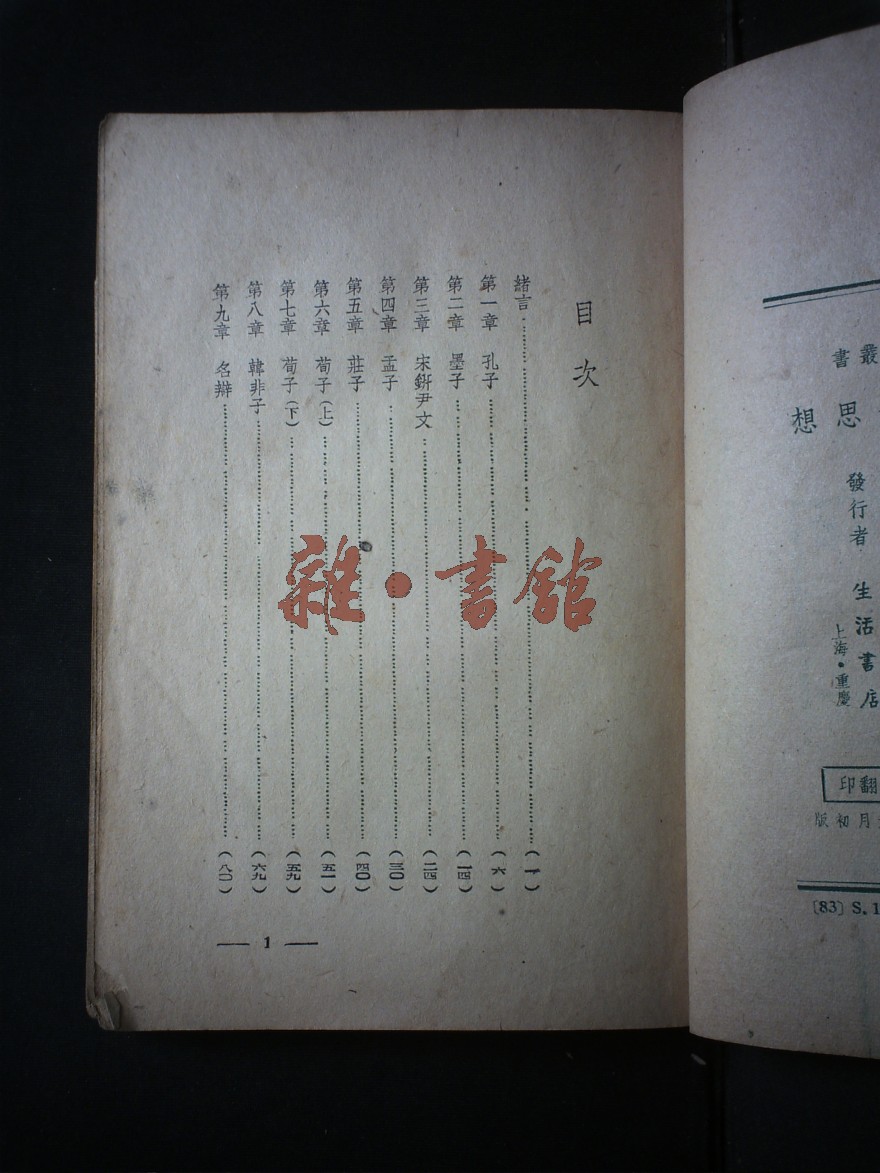 叢書
思想
發行者 生活書店
上海・重慶
翻印
月初版
[83] S. 1
目次
緒言 (一)
第一章 孔子 (六)
第二章 墨子 (一四)
第三章 宋鈃尹文 (二四)
第四章 孟子 (三〇)
第五章 莊子 (四〇)
第六章 荀子(上) (五一)
第七章 荀子(下) (五九)
第八章 韓非子 (六九)
第九章 名辯 (八〇)
— 1 —
雜・書館